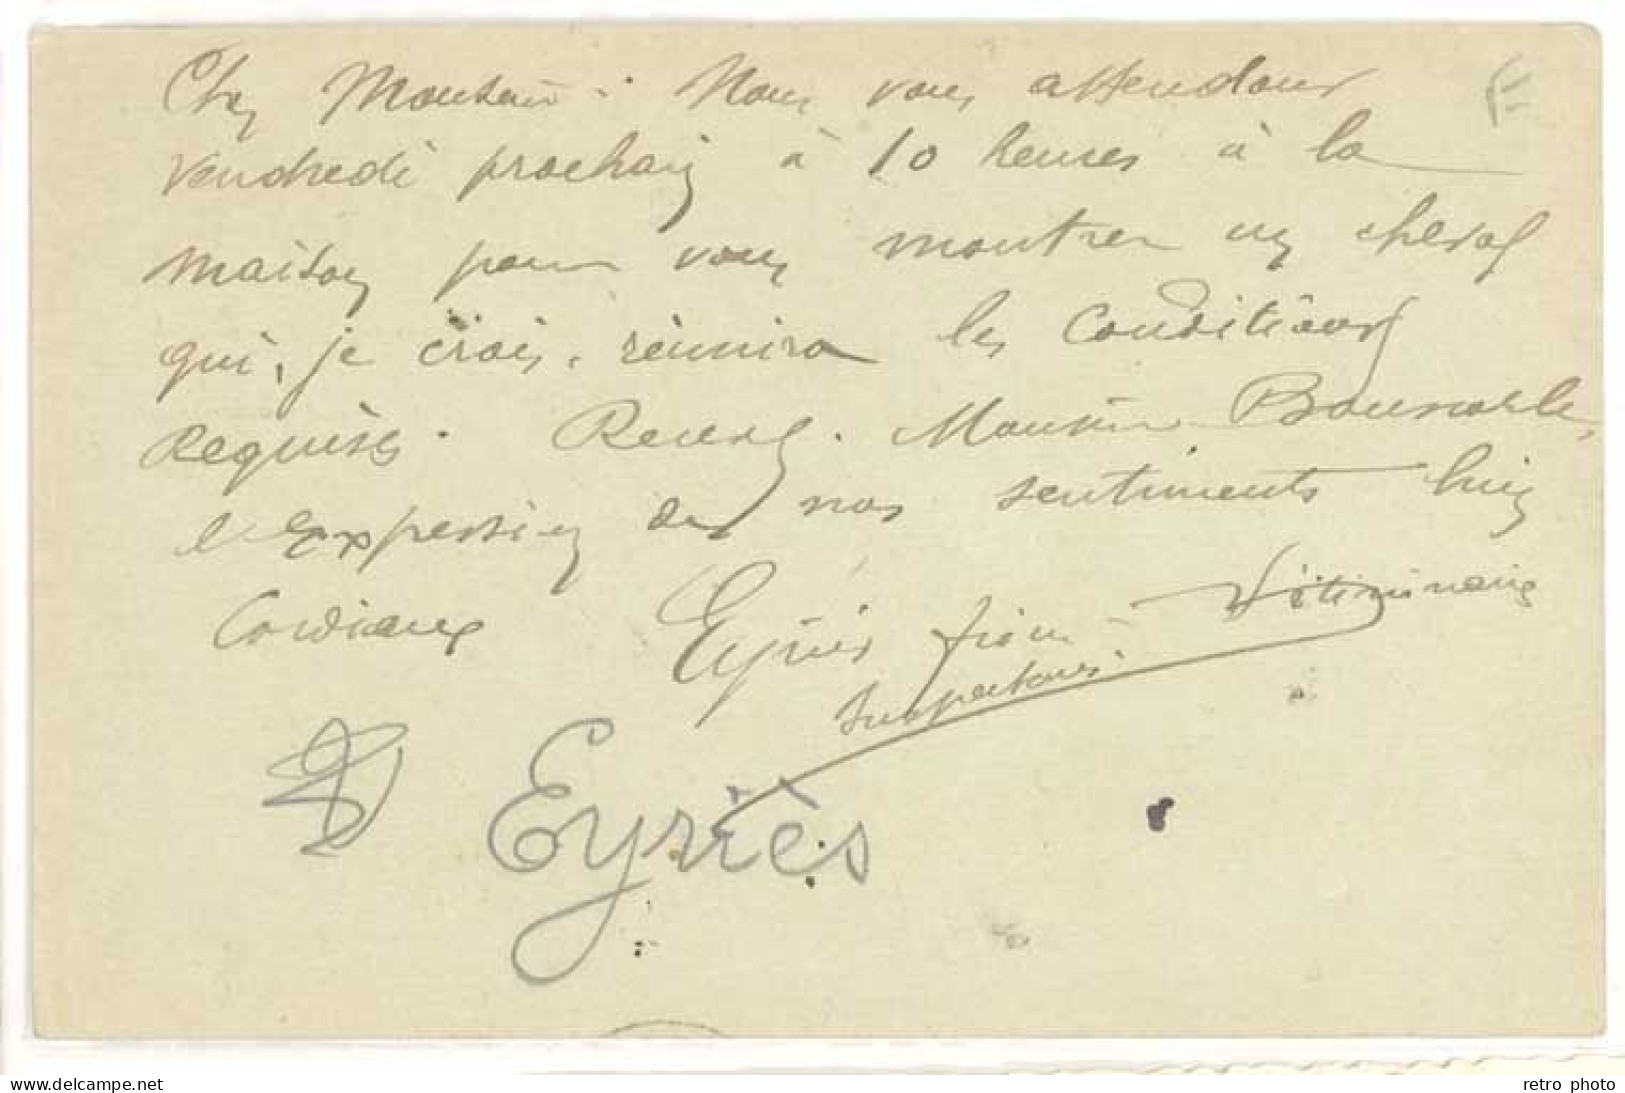 Cher Monsieur. Nous vous attendons
vendredi prochain à 10 heures à la
maison pour vous montrer un cheval
qui, je crois, réunira les conditions
requises. Recevez. Monsieur
l'expression de nos sentiments bien
Cordiaux Eyriès Vétérinaire
Inspecteur
Eyriès
www.delcampe.net retro photo